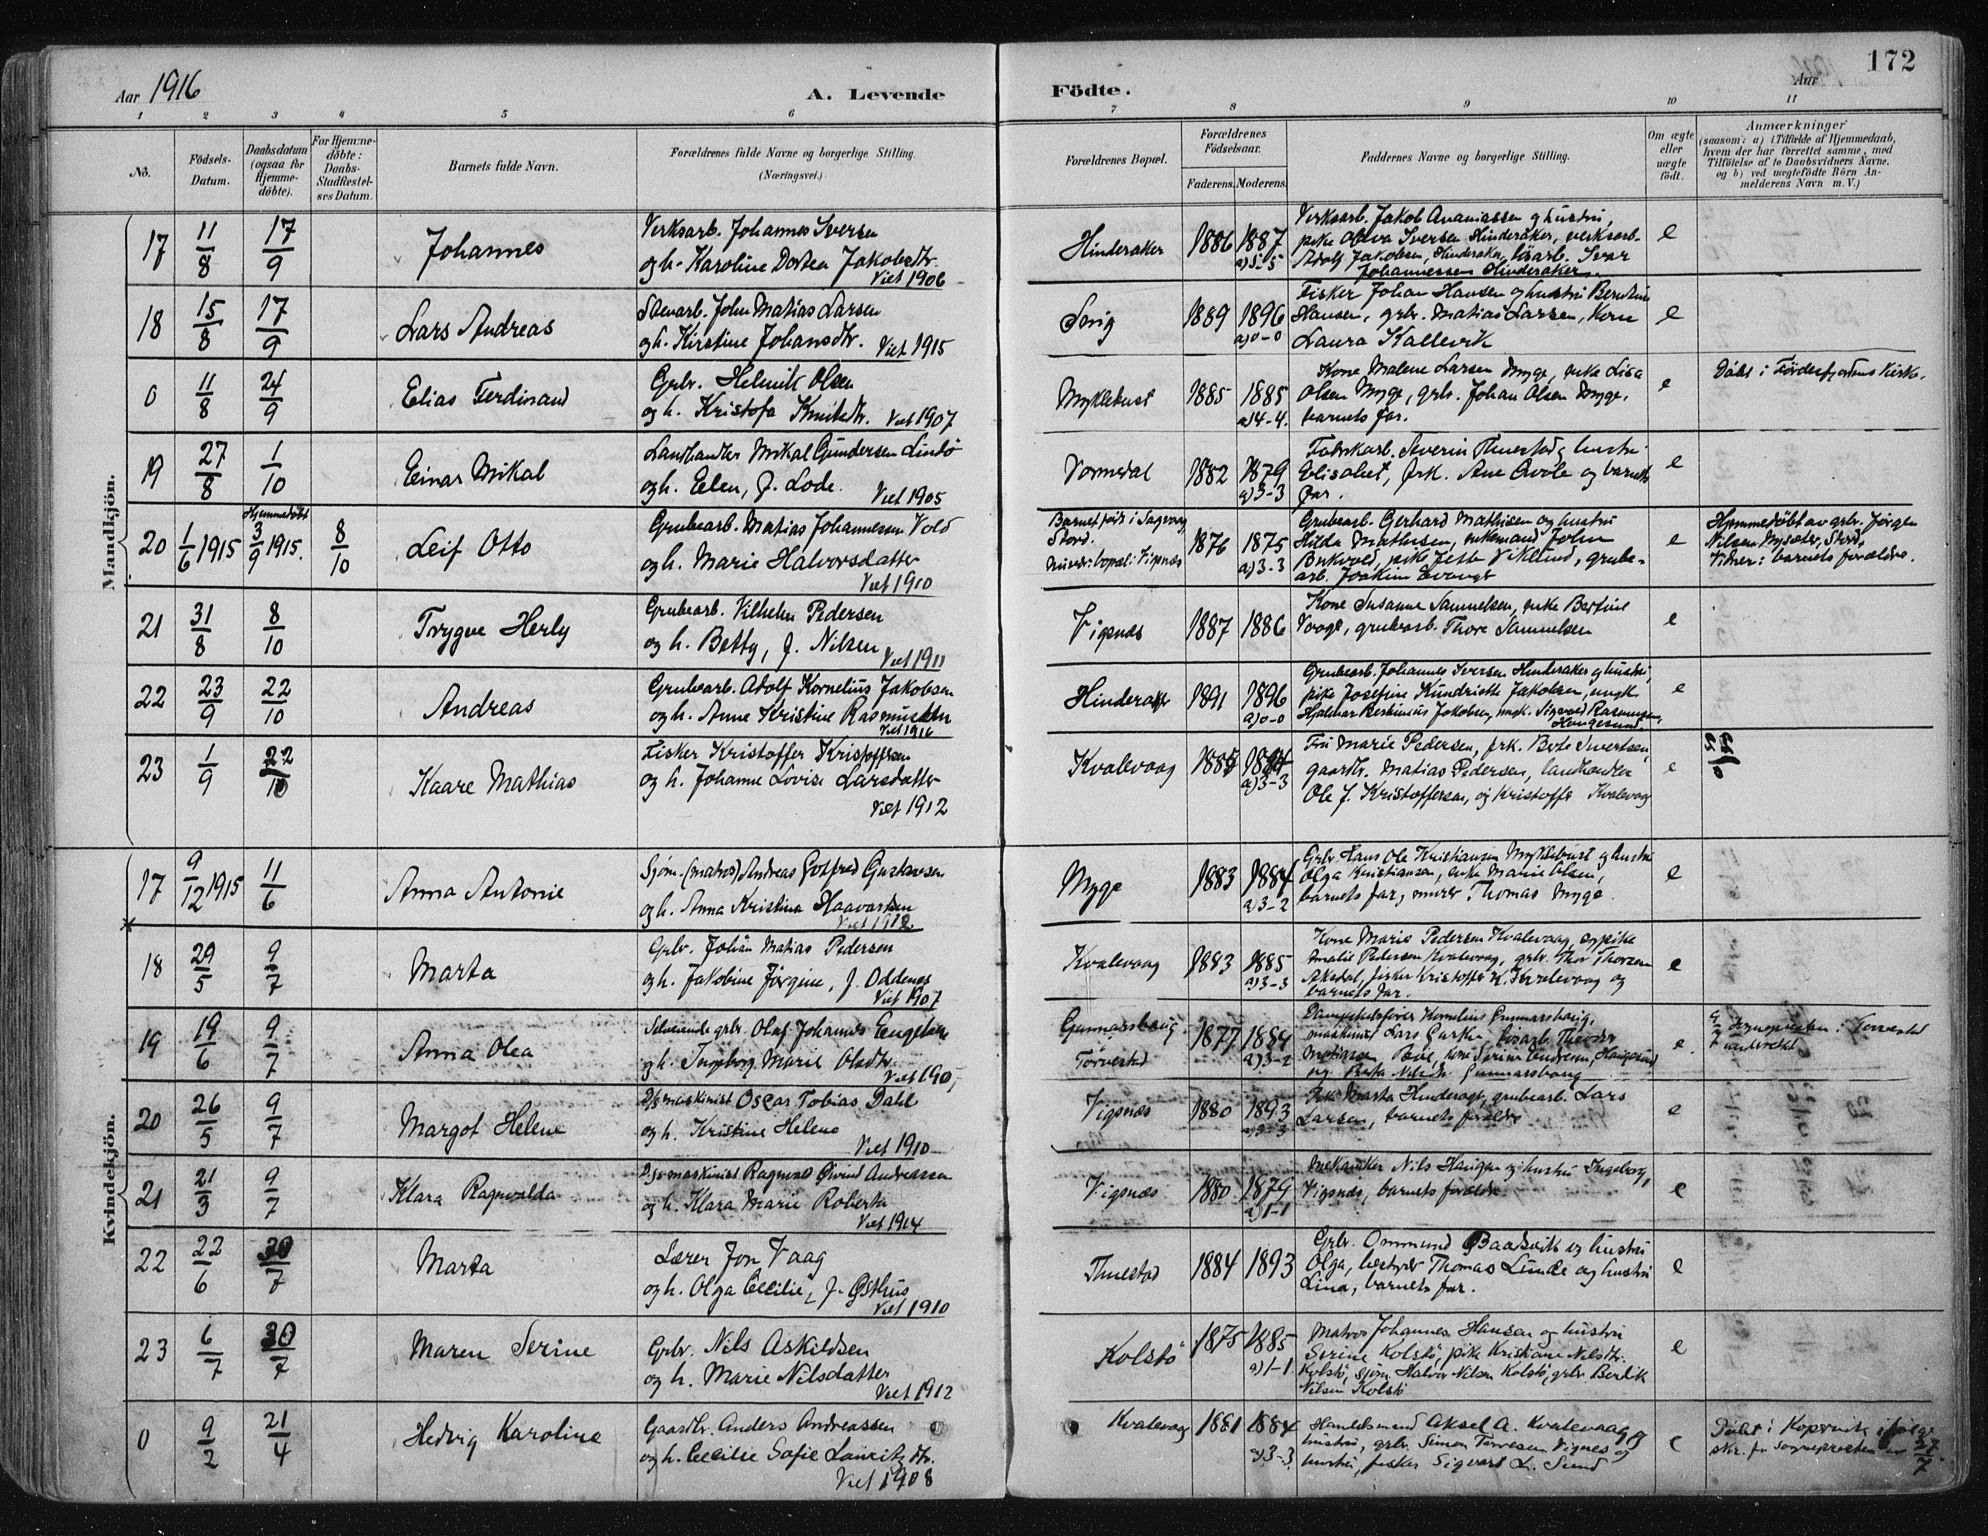 Aar 1916
A. Levende
Födte.
Aar
172
1 2 3 4 5 6 7 8 9 10 11
No.
Födsels-
Datum.
Daabsdatum
(ogsaa for
Hjemme-
döbte).
For Hjemme-
döbte:
Daabs-
Stadfæstel-
ses Datum.
Barnets fulde Navn.
Forældrenes fulde Navne og borgerlige Stilling.
(Næringsvei.)
Forældrenes Bopæl.
Forældrenes
Födselsaar.
Faderens. Moderens.
Faddernes Navne og borgerlige Stilling.
Om ægte
eller
uægte
födt.
Anmærkninger
(saasom: a) i Tilfælde af Hjemmedaab,
hvem der har forrettet samme, med
Tilföielse af to Daabsvidners Navne.
og b) ved uægtefödte Börn An-
melderens Navn m.V.)
Mandkjön.
17 11/8 17/9 Johannes
Verksarb. Johannes Iversen
og h. Karoline Dortea Jakobsdtr.
Viet 1906
Hinderaker 1886 1887
a) 5-5
Verksarb. Jakob Ananiassen og hustru,
pike Iversen Hinderaker, verksarb.
Adolf Jakobsen, Hinderaker, Ivar
Johannessen Hinderaker
e
18 15/8 17/9 Lars Andreas
John Matias Larsen
og h. Kirstine Johansdtr. Viet 1915
1889 1896
a) 0-0
Fisker Johan Hansen og hustru
Hansen, grbr. Matias Larsen, Kone
Laura Kallevik
e
0 11/8 24/9 Elias Ferdinand
Grbr. Helmik Olsen
og h. Kristofa Knutsdtr. Viet 1907
Myklebust 1885 1885
a) 4-4.
Kone Malene Larsen Myge, enke Lisa
Olsen Myge, grbr. Johan Olsen Myge,
barnets far.
e
Döbt i Fördesfjordens Kirke.
19 27/8 1/10 Einar Mikal
Landhandler Mikal Gundersen Lindö
og h. Elen, f. Lode. Viet 1905
Vormedal 1882 1879
a) 3-3
Fabrikarb. Severin Thuestad, hustru
Elisabet, frk. Ane og barnets
far.
e
20 1/6 1915 Hjemmedöbt 3/9 1915. 8/10 Leif Otto
Grubearb. Matias Johannesen Vold
og h. Marie Halvorsdatter
Viet 1910
Barnet födt i Sagvaag
Stord.
bopæl: Vigsnæs
1876 1875
a) 3-3
Grubearb. Gerhard Mathisen og hustru
Hilda Mathisen, enkemand John
pike Viklund, grube-
arb. Joakim
e
Hjemmedöbt av grbr. Jörgen
Nilsen Mysæter, Stord,
Vidner: barnets forældre.
21 31/8 8/10 Trygve Herly
Grubearb. Vilhelm Pedersen
og h. Betty, f. Nilsen Viet 1911
Vigsnæs 1887 1886
Kone Susanne Samuelsen, enke Bertine
Vaage, grubearb. Thore Samuelsen
e
22 23/9 22/10 Andreas
Grubearb. Adolf Kornelius Jakobsen
og h. Anne Kristine Rasmussen
Viet 1916
Hinderaker 1891 1896
a) 0-0
Grubearb. Johannes Iversen Hinderaker og hustru,
pike Josefine Jakobsen, ungk.
Hjalmar Jakobsen, ungk. Sigvald Rasmussen,
Haugesund.
e
23 1/9 22/10 Kaare Mathias
Fisker Kristoffer Kristoffersen
og h. Johanne Lovise Larsdatter
Viet 1912
Kvalevaag
a) 3-3
Fru Marie Pedersen, frk. Sivertsen,
gaardbr. Matias Pedersen, landhandler
Ole J. Kristoffersen, og Kristoffer Kvalevaag
e
Kvindekjön.
17 9/12 1915 11/6 Anna Antonie
Sjöm. (matros) Andreas Gotfred Gustavsen
og h. Anna Kristina Haavardsen
Viet 1912
Myge 1883 1884
a) 3-2
Grbr. Hans Ole Kristiansen Myklebust og hustru
Olga Kristiansen, enke Marie Olsen,
barnets far, murer Thomas Myge.
e
18 29/5 9/7 Marta
Grbr. Johan Matias Pedersen
og h. Jakobine Jörgine, f. Oddenes
Viet 1907
Kvalevaag 1883 1885
a) 3-3
Kone Marie Pedersen Kvalevaag, pike
Malie Pedersen Kvalevaag, grbr. Thor Thorsen
Aksdal, fisker Kristoffer K. Kvalevaag og
barnets far.
e
19 19/6 9/7 Anna Olea
Selveiende grbr. Olaf Johannes Engelsen
og h. Ingeborg Marie Olsdtr.
Viet 190
Gunnarshaug
Torvestad 1877 1884
a) 3-2
Dampskibsförer Kornelius Gunnarshaug,
maskinist Lars Theodor
Matiassen Böe, kone Serine Andersen, Haugesund
og Berta Gunnarshaug
e.
9/7 Sognepresten i Torvestad
underrettet
20 26/5 9/7 Margot Helene
D/s maskinist Oscar Tobias Dahl
og h. Kristine Helene
Viet 1910
Vigsnæs 1880 1893
a) 3-3
Frk. Marta Hinderager, grubearb. Lars
Larsen, barnets forældre
e
21 21/3 9/7 Klara Ragnvalda
D/s maskinist Ragnvald Øivind Andreassen
og h. Klara Marie Roberta
Viet 1914
Vigsnæs 1880 1879
a) 1-1
Mekaniker Nils Haugen og hustru Ingeborg,
Vigsnæs, barnets forældre.
e
22 22/6 30/7 Marta
Lærer Jon Vaag
og h. Olga Cecilie, f. Østhus
Viet 1910
Thuestad 1884 1893
Grbr. Ommund Baardsvik og hustru
Olga, bestyrer Thomas Lunde og hustru
Lina, barnets far.
e
23 6/7 30/7 Maren Serine
Grbr. Nils Askildsen
og h. Marie Nilsdatter
Viet 1912
Kolstö 1875 1885
a) 1-1.
Matros Johannes Hansen og hustru
Serine Kolstö, pike Kristiane Nilsdtr.
Kolstö, sjöm. Halvor Nilsen Kolstö, grbr. Berdik
Nilsen Kolstö
e
0 9/2 21/4 Hedvig Karoline
Gaardbr. Anders Andreassen
og h. Cecilie Sofie Lauritzdtr.
Viet 1908
Kvalevaag 1881 1884
a) 3-3.
Handelsmand Aksel A. Kvalevaag og
hustru, grbr. Simon Torvesen Vignes og
hustru, fisker Sigvart L. Sund
e
Döbt i Kopervik ifölge
skr. fr. sognepresten av 27/7